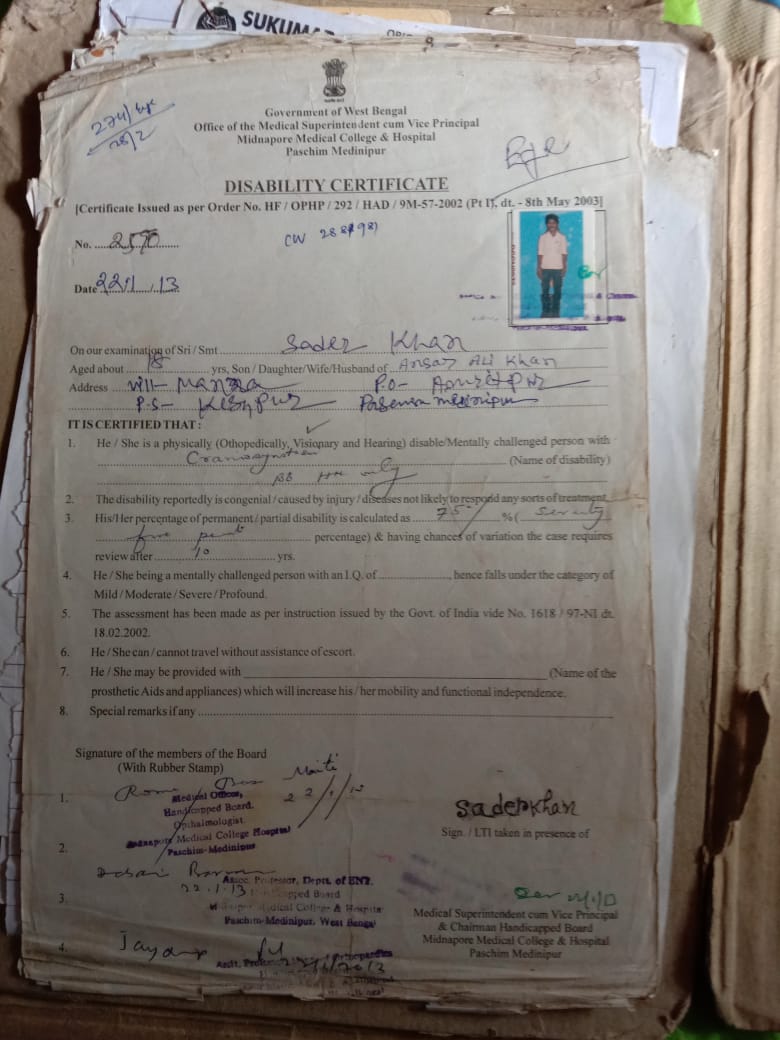 SUKUMAR
274/
28/2
Government of West Bengal
Office of the Medical Superintendent cum Vice Principal
Midnapore Medical College & Hospital
Paschim Medinipur
DISABILITY CERTIFICATE
[Certificate Issued as per Order No. HF / OPHP / 292 / HAD / 9M-57-2002 (Pt I), dt. - 8th May 2003]
No. ....2590............
Date 22/1/13
On our examination of Sri / Smt Sader Khan
Aged about 18 yrs, Son / Daughter/Wife/Husband of Ansar Ali Khan
Address Vill- P.O-
P.S- Keshpur Paschim Medinipur
IT IS CERTIFIED THAT :
1. He / She is a physically (Othopedically, Visionary and Hearing) disable/Mentally challenged person with
(Name of disability)
2. The disability reportedly is congenial / caused by injury / diseases not likely to respond any sorts of treatment.
3. His/Her percentage of permanent / partial disability is calculated as 75 %( Seventy
five percentage) & having chances of variation the case requires
review after 10 yrs.
4. He / She being a mentally challenged person with an I.Q. of, hence falls under the category of
Mild / Moderate / Severe / Profound.
5. The assessment has been made as per instruction issued by the Govt. of India vide No. 1618 / 97-NI dt.
18.02.2002.
6. He / She can / cannot travel without assistance of escort.
7. He / She may be provided with (Name of the
prosthetic Aids and appliances) which will increase his / her mobility and functional independence.
8. Special remarks if any
Signature of the members of the Board
(With Rubber Stamp)
1. Maiti 22/1/13
Medical Officer,
Handicapped Board.
Opthalmologist.
2. Midnapore Medical College Hospital
Paschim-Medinipur
Sader Khan
Sign. / LTI taken in presence of
Assoc. Professor, Deptt. of ENT.
3. 22.1.13 Handicapped Board
Medical College & Hospital
Paschim-Medinipur, West Bengal
Medical Superintendent cum Vice Principal
& Chairman Handicapped Board
Midnapore Medical College & Hospital
Paschim Medinipur
4. Jaydip
Asstt. Orthopaedics